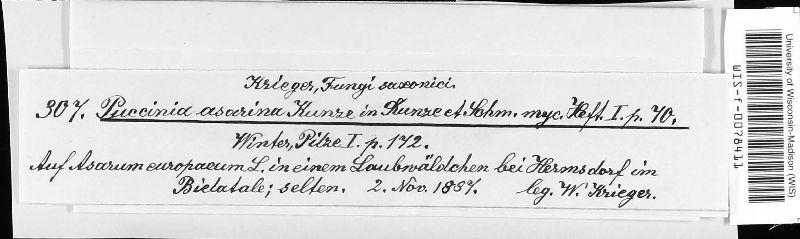 Krieger, Fungi saxonici.
307. Puccinia asarina Kunze in Kunze et Schm. myc. Heft. I. p. 70.
Winter, Pilze I. p. 172.
Auf Asarum europaeum L. in einem Laubwäldchen bei Hermsdorf im
Bielatale; selten. 2. Nov. 1887. leg. W. Krieger.
University of Wisconsin-Madison (WIS)
WIS-f-0078411